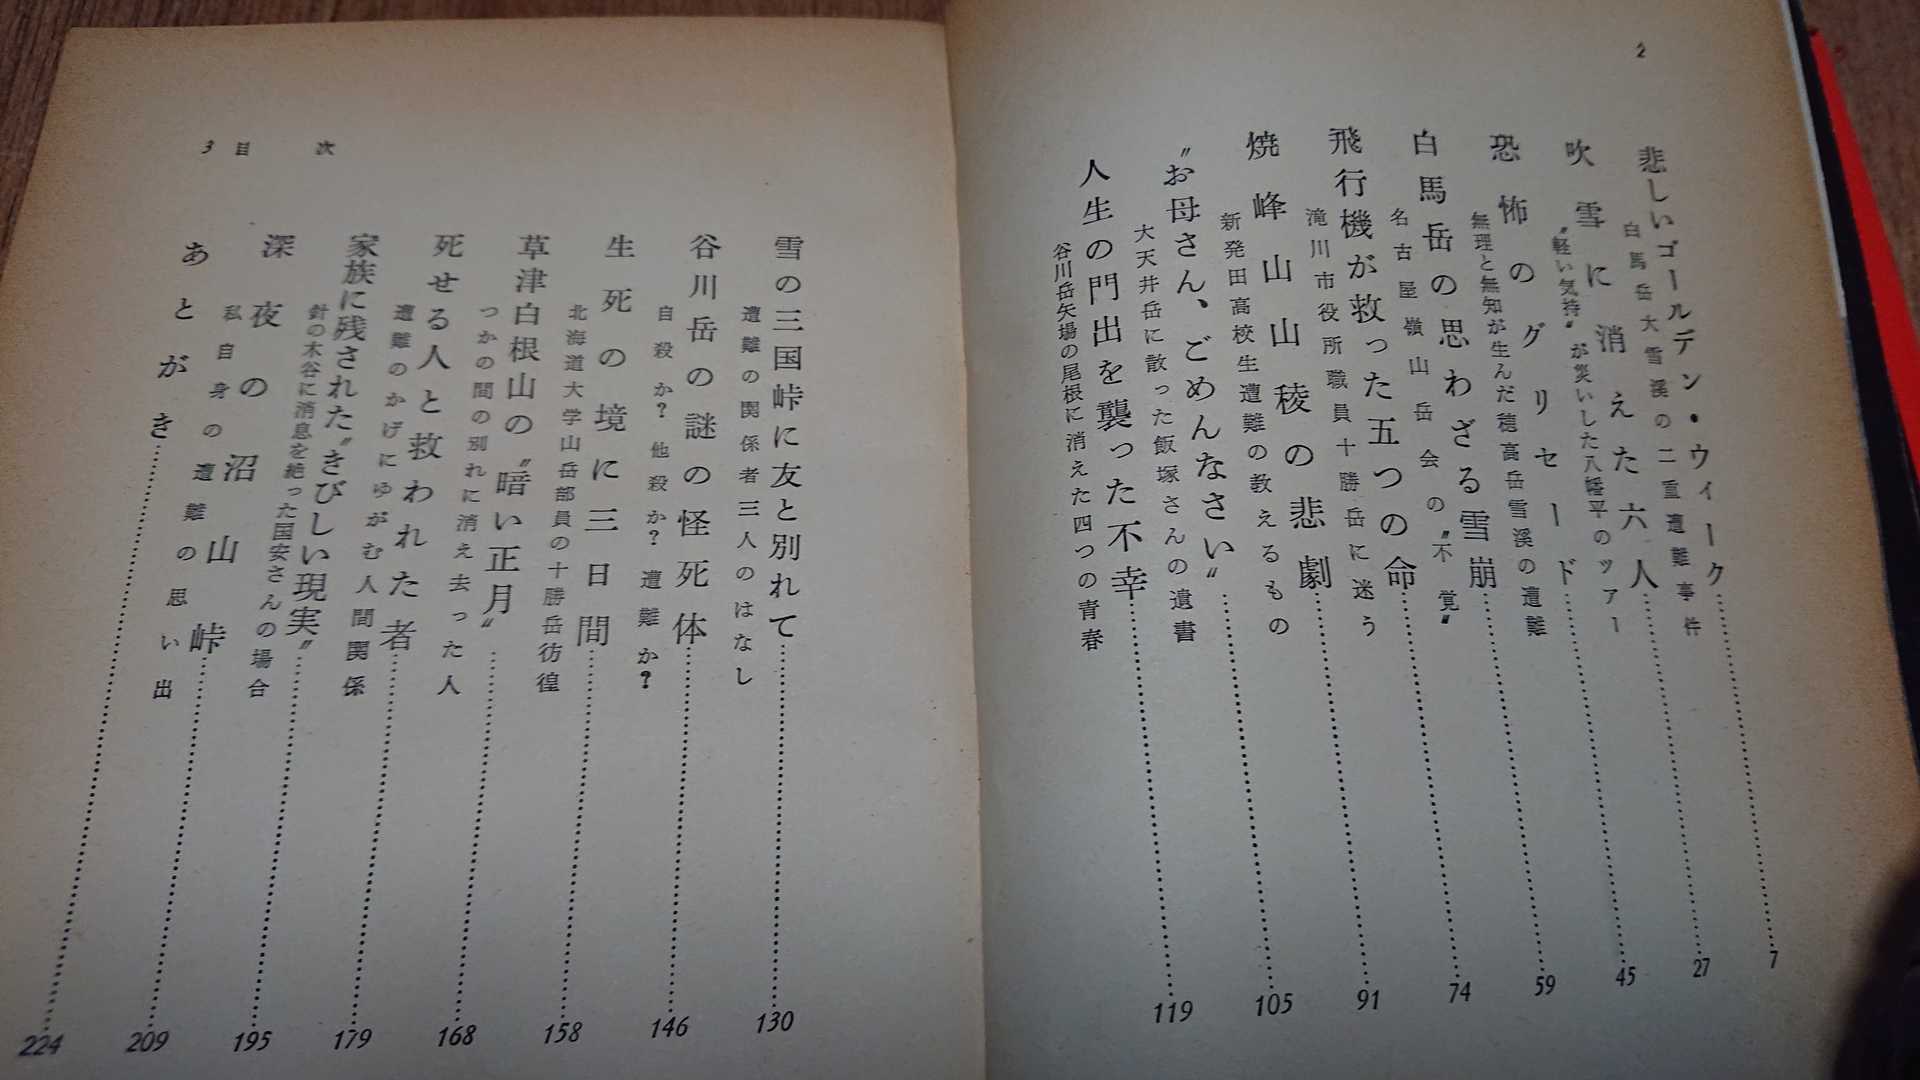 2
悲しいゴールデン・ウィーク……7
白馬岳大雪渓の二重遭難事件
吹雪に消えた六人……27
〝軽い気持〟が災いした八幡平のツアー
恐怖のグリセード……45
無理と無知が生んだ穂高岳雪渓の遭難
白馬岳の思わざる雪崩……59
名古屋嶺山岳会の〝不覚〟
飛行機が救った五つの命……74
滝川市役所職員十勝岳に迷う
焼峰山山稜の悲劇……91
新発田高校生遭難の教えるもの
〝お母さん、ごめんなさい〟……105
大天井岳に散った飯塚さんの遺書
人生の門出を襲った不幸……119
谷川岳矢場の尾根に消えた四つの青春
3 目次
雪の三国峠に友と別れて……130
遭難の関係者三人のはなし
谷川岳の謎の怪死体……146
自殺か?他殺か?遭難か?
生死の境に三日間……158
北海道大学山岳部員の十勝岳彷徨
草津白根山の〝暗い正月〟……168
つかの間の別れに消え去った人
死せる人と救われた者……179
遭難のかげにゆがむ人間関係
家族に残された〝きびしい現実〟……195
針の木谷に消息を絶った国安さんの場合
深夜の沼山峠……209
私自身の遭難の思い出
あとがき……224